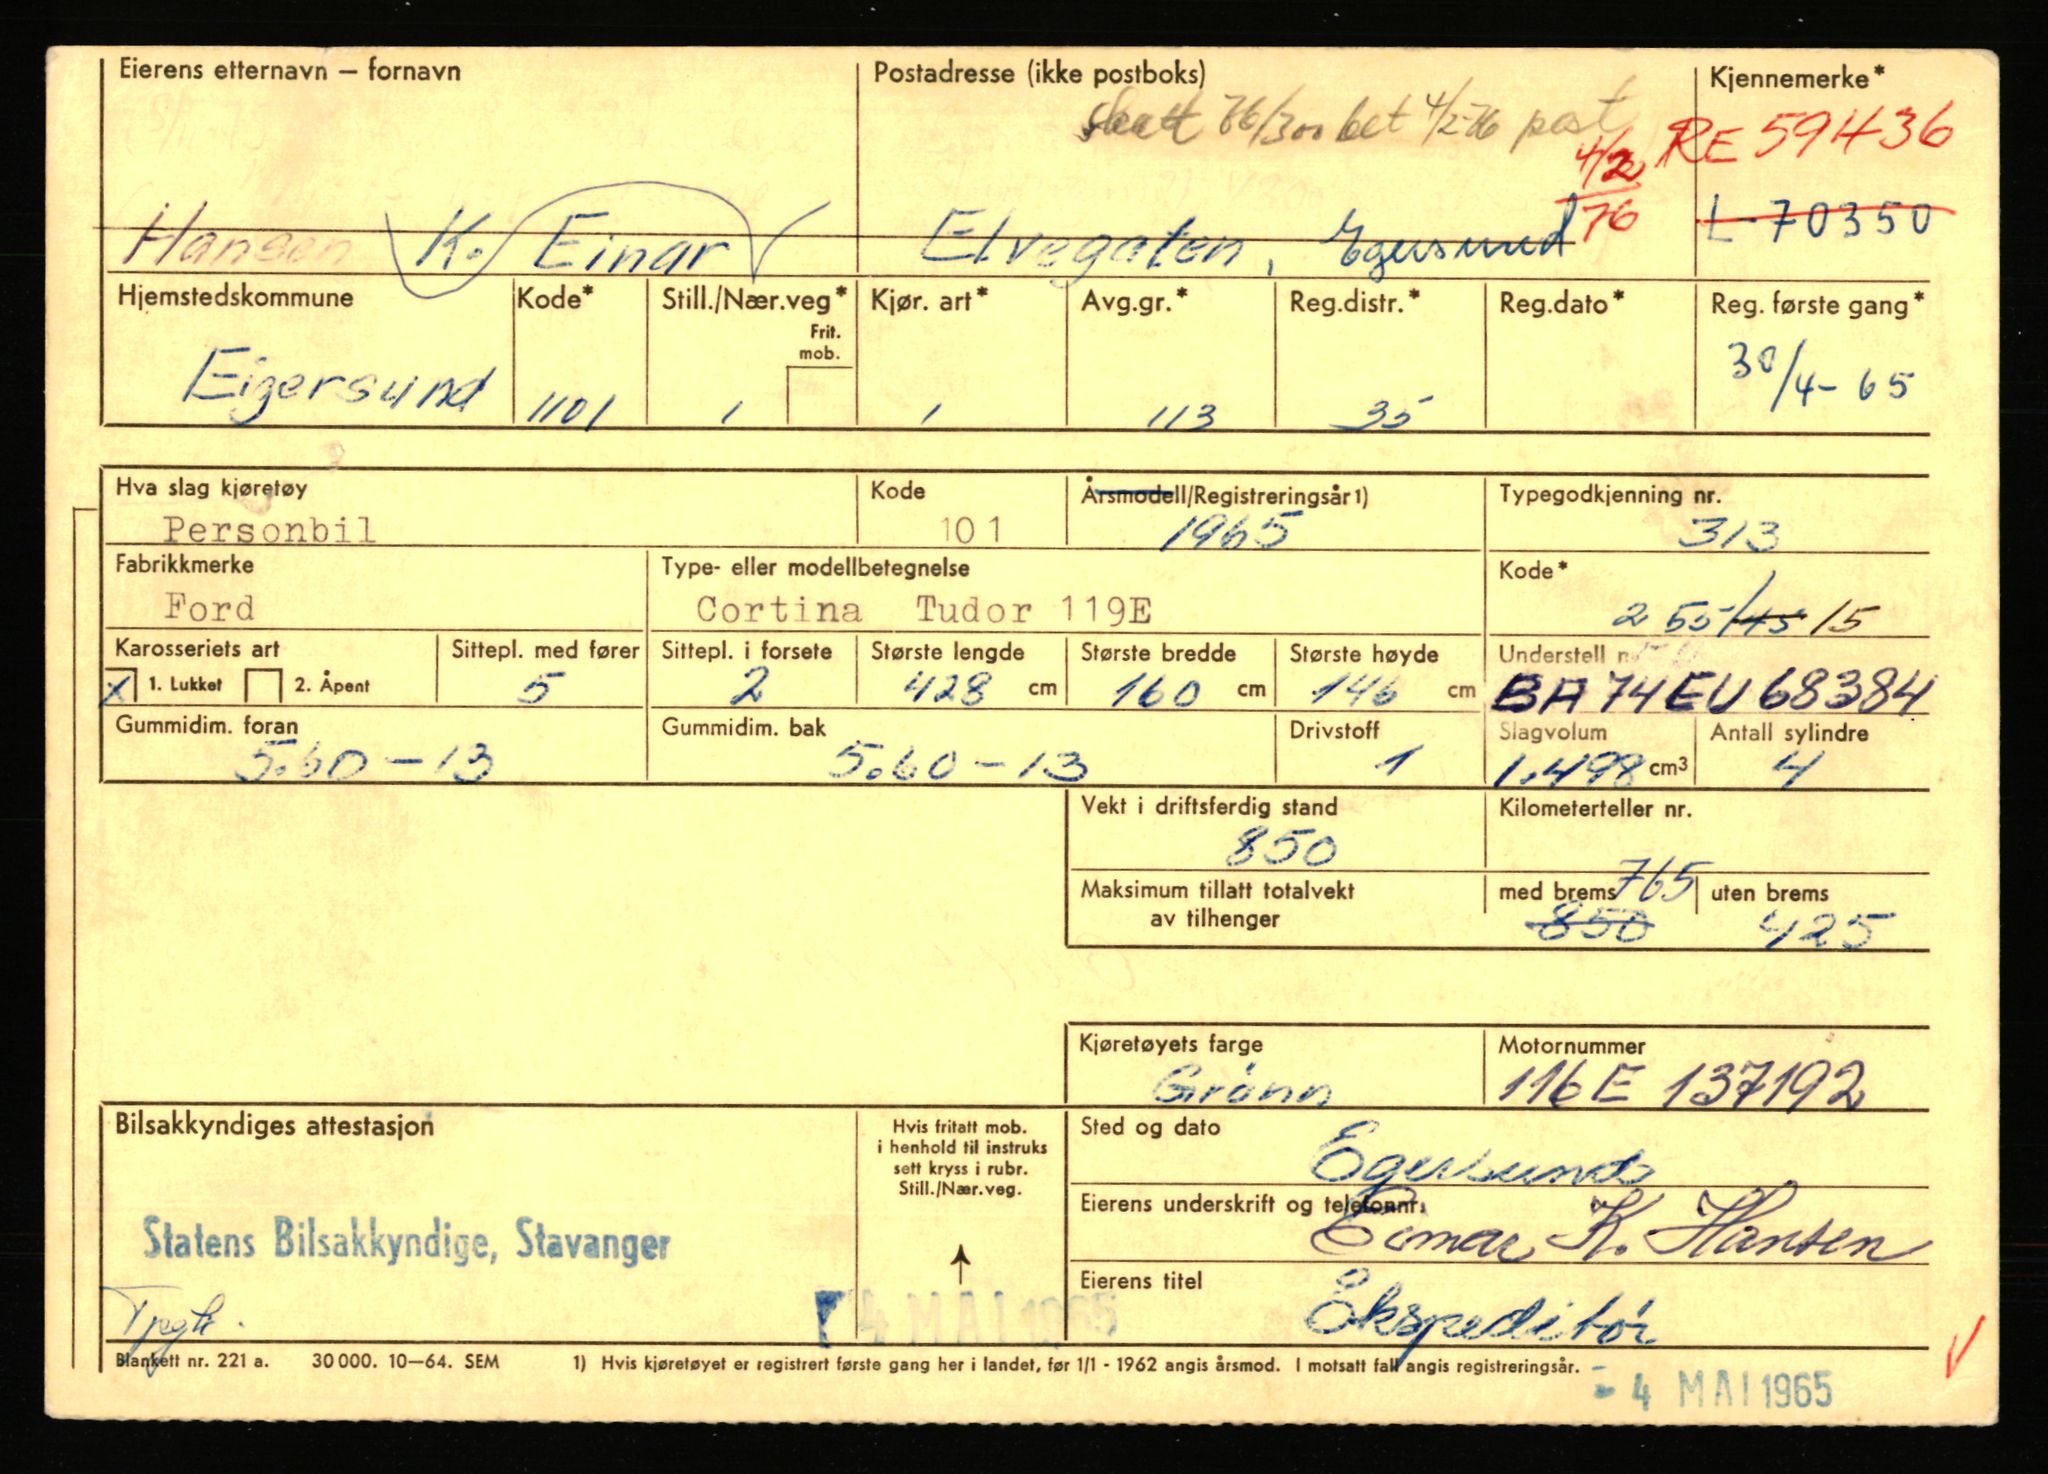 Eierens etternavn – fornavn Postadresse (ikke postboks) Kjennemerke*
skatt 76/300 bet 4/2-76 post
4/2 76 RE 59436
Hansen K. Einar Elvegaten, Egersund L-70350
Hjemstedskommune Kode* Still./Nær.veg* Kjør. art* Avg.gr.* Reg.distr.* Reg.dato* Reg. første gang*
Frit. mob.
Eigersund 1101 1 1 113 35 30/4-65
Hva slag kjøretøy Kode Årsmodell/Registreringsår 1) Typegodkjenning nr.
Personbil 101 1965 313
Fabrikkmerke Type- eller modellbetegnelse Kode*
Ford Cortina Tudor 119E 255/45 15
Karosseriets art Sittepl. med fører Sittepl. i forsete Største lengde Største bredde Største høyde Understell nr.
x 1. Lukket 2. Åpent 5 2 428 cm 160 cm 146 cm BA74EU68384
Gummidim. foran Gummidim. bak Drivstoff Slagvolum Antall sylindre
5.60-13 5.60-13 1 1.498 cm3 4
Vekt i driftsferdig stand Kilometerteller nr.
850
Maksimum tillatt totalvekt med brems 765 uten brems
av tilhenger 850 425
Kjøretøyets farge Motornummer
Grønn 116E 137192
Bilsakkyndiges attestasjon Hvis fritatt mob. Sted og dato
i henhold til instruks
sett kryss i rubr.
Still./Nær.veg.
Egersund
Eierens underskrift og telefonnr.
Statens Bilsakkyndige, Stavanger Einar K. Hansen
Eierens titel
4 MAI 1965 Ekspeditør
Blankett nr. 221 a. 30 000. 10—64. SEM 1) Hvis kjøretøyet er registrert første gang her i landet, før 1/1 - 1962 angis årsmod. I motsatt fall angis registreringsår.
- 4 MAI 1965